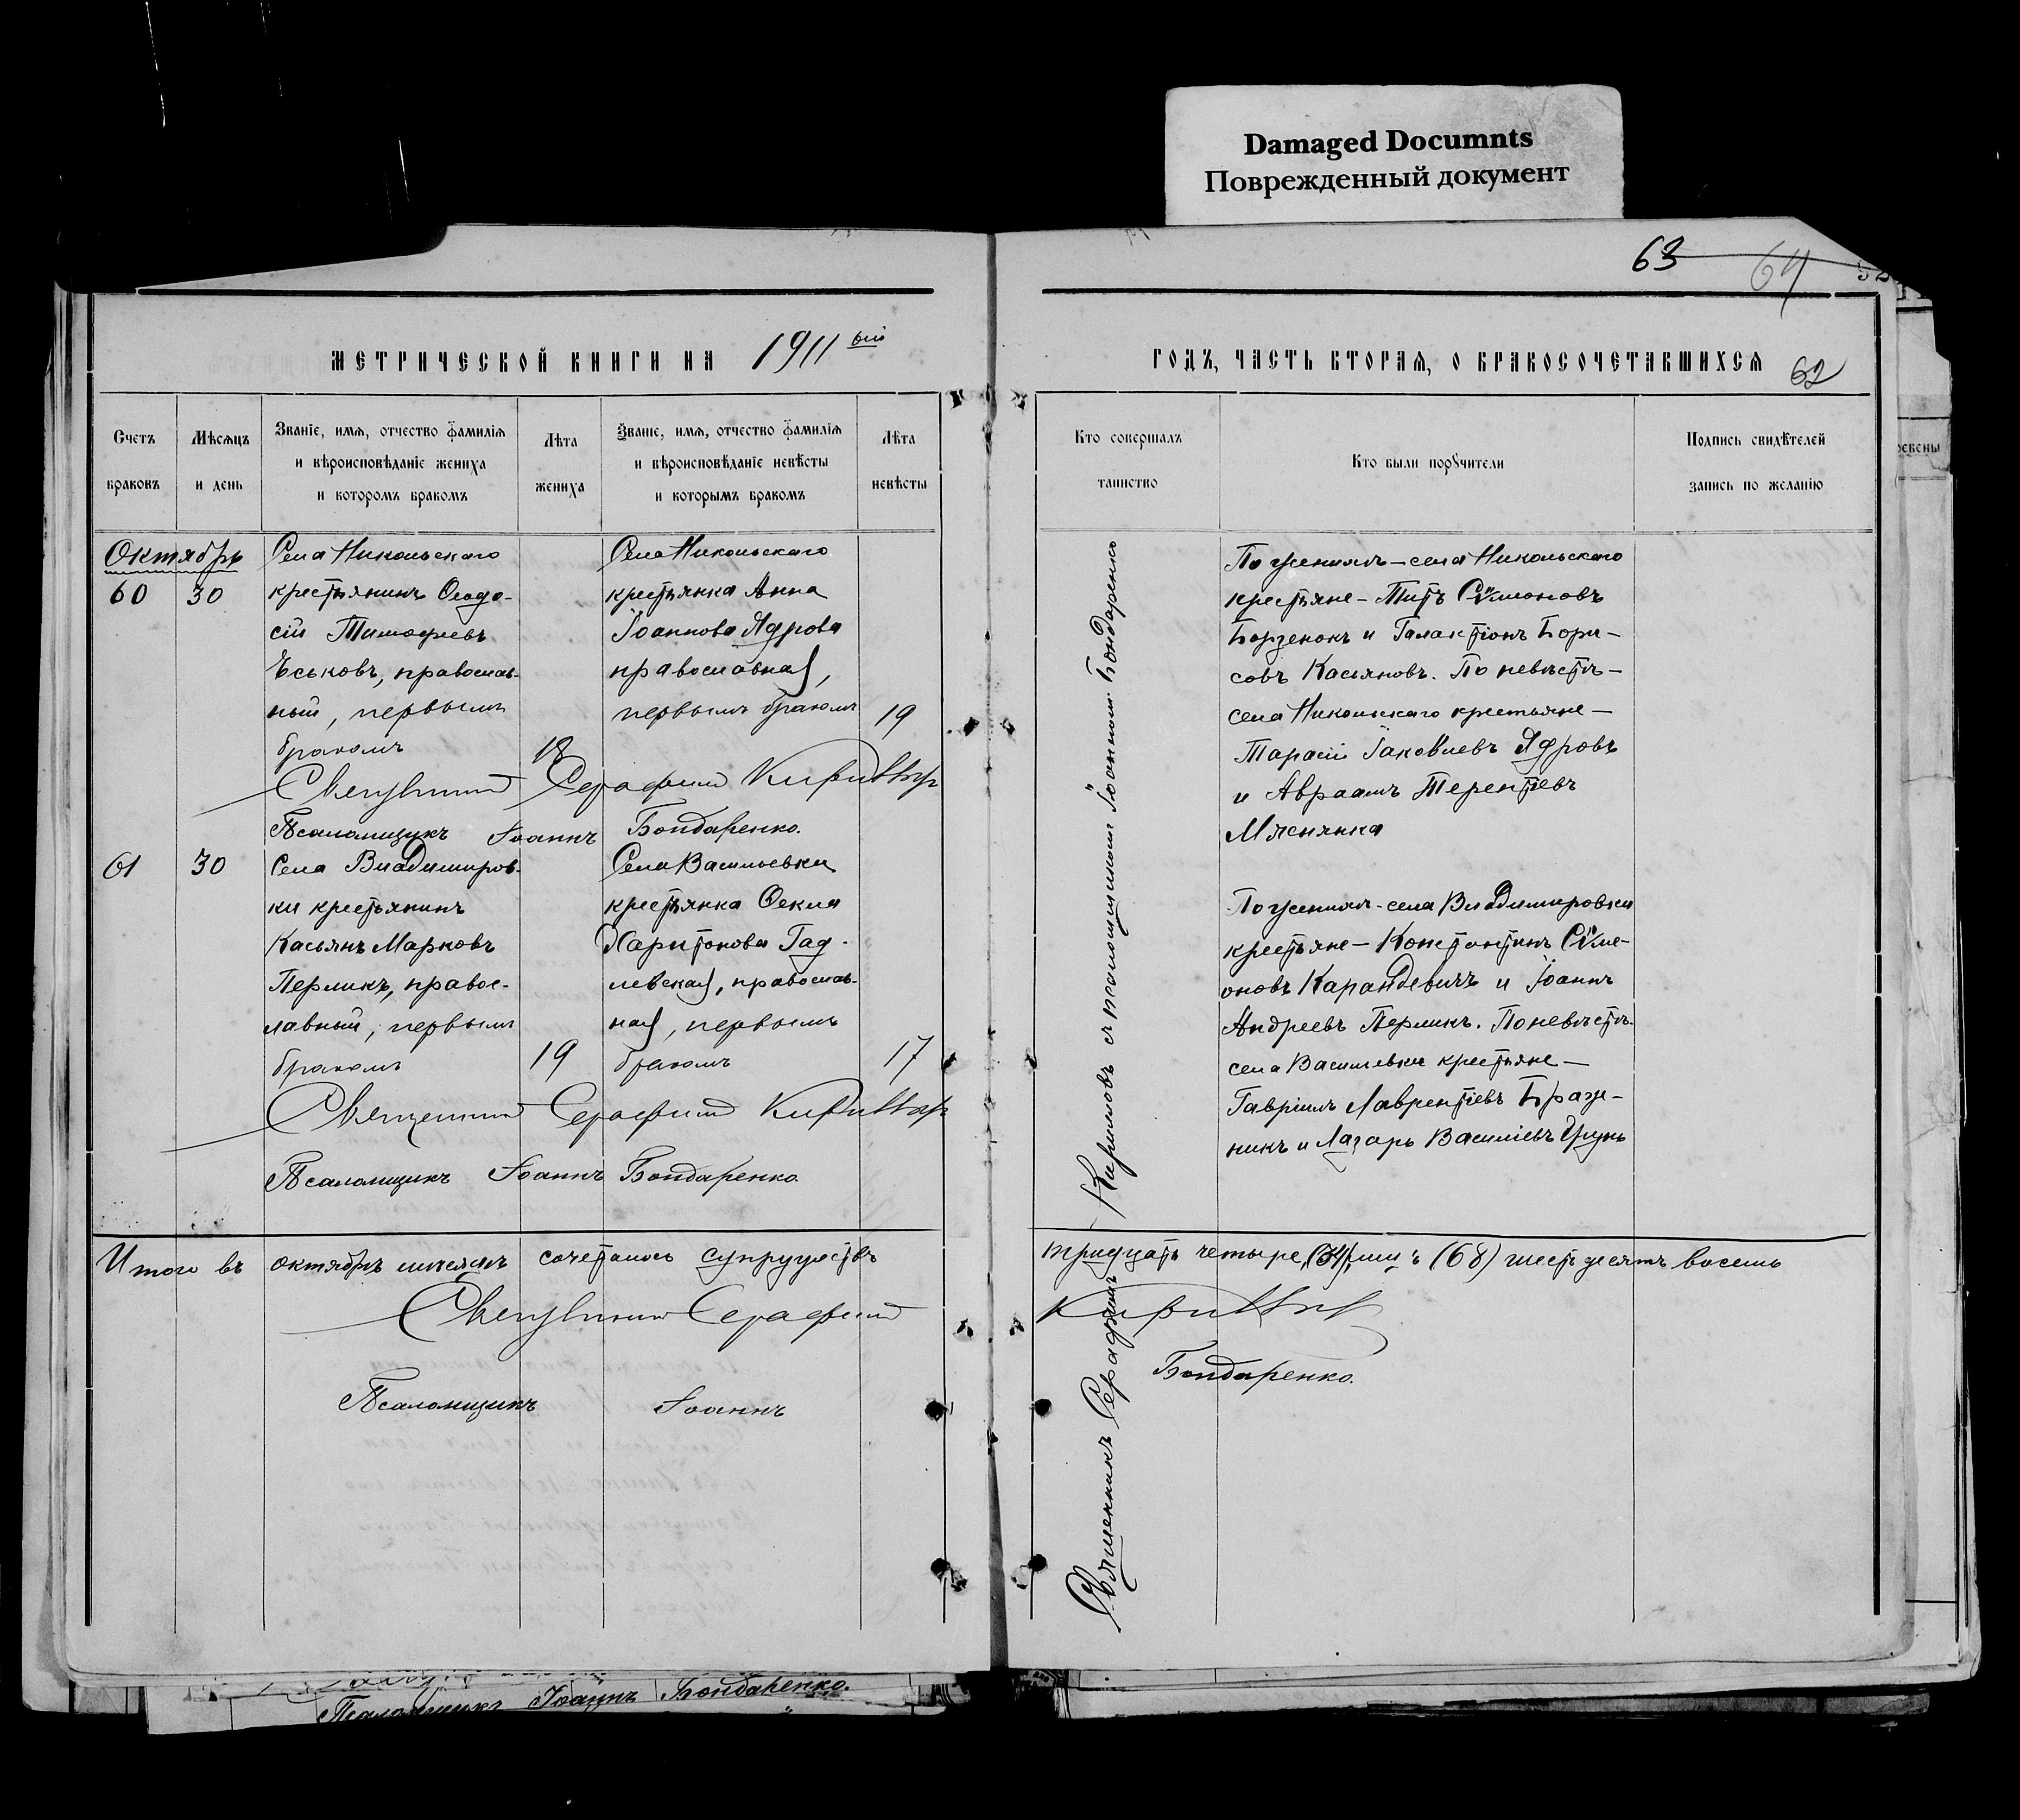 Damaged Documnts
Поврежденный документ
63 64
МЕТРИЧЕСКОЙ КНИГИ НА 1911 ый
ГОДЪ, ЧАСТЬ ВТОРАЯ, О БРАКОСОЧЕТАВШИХСЯ 62
Счетъ браковъ
Мѣсяцъ и день
Званіе, имя, отчество фамилія
и вѣроисповѣданіе жениха
и которомъ бракомъ
Лѣта жениха
Званіе, имя, отчество фамилія
и вѣроисповѣданіе невѣсты
и которымъ бракомъ
Лѣта невѣсты
Кто совершалъ таинство
Кто были поручители
Подпись свидѣтелей
запись по желанію
Октябрь
60 30
Села Никольскаго
крестьянинъ Ѳеодо-
сій Тимофеевъ
Еськовъ, православ-
ный, первымъ
бракомъ
18
Села Никольскаго
крестьянка Анна
Іоаннова Ядрова
православная,
первымъ бракомъ
19
Священникъ Серафимъ
Псаломщикъ Іоаннъ Бондаренко.
61 30
Села Владимиров-
ки крестьянинъ
Касьянъ Марковъ
Перликъ, правос-
лавный, первымъ
бракомъ
19
Села Васильевки
крестьянка Ѳекла
Харитонова Гад-
левская, православ-
ная, первымъ
бракомъ
17
Священникъ Серафимъ
Псаломщикъ Іоаннъ Бондаренко.
Священникъ Серафимъ Кириловъ съ псаломщикомъ Іоанномъ Бондаренко
По женихѣ - села Никольскаго
крестьяне - Титъ Сѵмеоновъ
Борзенокъ и Галактіонъ Бори-
совъ Касьяновъ. По невѣстѣ -
села Никольскаго крестьяне -
Тарасій Іаковлевъ Ядровъ
и Авраамъ Терентіевъ
Мяснянка
По женихѣ - села Владимировки
крестьяне - Константинъ Сѵме-
оновъ Карандевичъ и Іоаннъ
Андреевъ Перликъ. По невѣстѣ -
села Васильевки крестьяне -
Гавріилъ Лаврентіевъ Браж-
никъ и Лазарь Василіевъ
Итого въ октябрѣ мѣсяцѣ сочеталось супружествъ
тридцать четыре, (34) (68) шестьдесятъ восемь
Священникъ Серафимъ
Псаломщикъ Іоаннъ Бондаренко.
Псаломщикъ Іоаннъ Бондаренко.